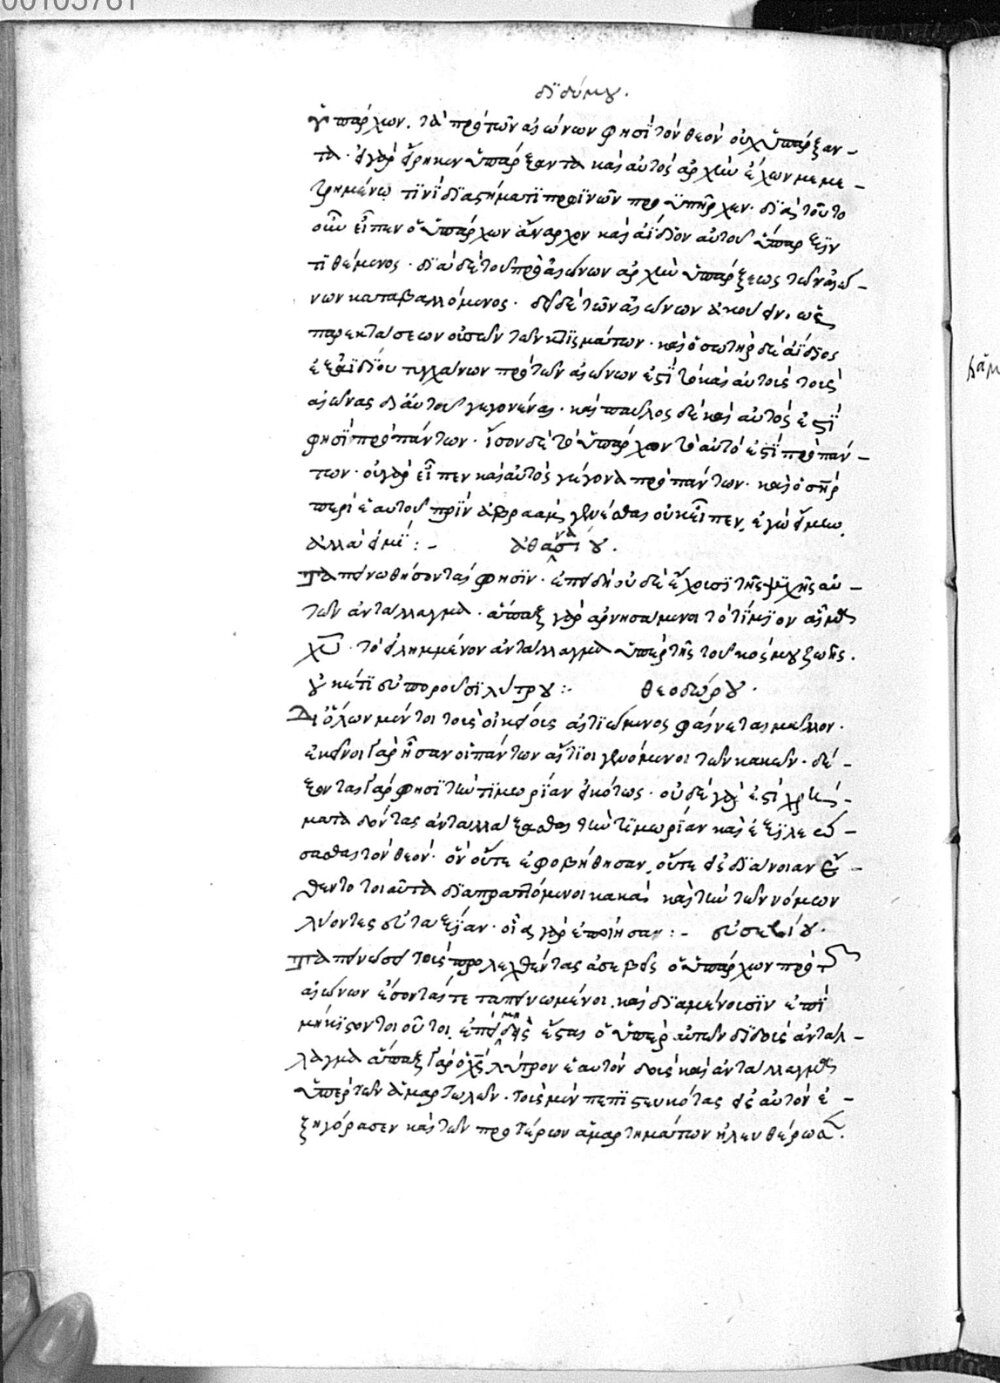 00105761
διδύμου.
ὑπάρχων. τὰ πρὸ τῶν αἰώνων φησὶ τὸν θεὸν οὐχ ὑπάρξαν-
τα. εἰ γὰρ εἴρηκεν ὑπάρξαντα καὶ αὐτὸς ἀρχὴν ἔχων μεμε-
τρημένῳ τινὶ διαστήματι πρ προϋπῆρχεν. διὰ τοῦτο
οὖν εἶπεν ὁ ὑπάρχων ἄναρχον καὶ ἀΐδιον αὐτοῦ ὕπαρξιν
τιθέμενος. διὰ δὲ τοῦ πρὸ αἰώνων ἀρχὴν ὑπάρξεως τῶν αἰώ-
νων καταβαλλόμενος. δεῖ δὲ τῶν αἰώνων ἀκούειν, ὡς
παρεκτάσεων οὐσῶν τῶν κτισμάτων. καὶ ὁ σωτὴρ δὲ ἀΐδιος
ἐξ ἀϊδίου τυγχάνων πρὸ τῶν αἰώνων ἐστὶ τὸ καὶ αὐτοὺς τοὺς
αἰῶνας δι' αὐτοῦ γεγονέναι. καὶ παῦλος δὲ καὶ αὐτός ἐστι
φησὶ πρὸ πάντων. ἴσον δὲ τὸ ὑπάρχων τὸ αὐτὸ ἐστὶ πρὸ πάν-
των. οὐ γὰρ εἶπεν καὶ αὐτὸς γέγονα πρὸ πάντων. καὶ ὁ σῆρ
περὶ ἑαυτοῦ πρὶν ἀβραὰμ γενέσθαι οὐκ εἶπεν, ἐγὼ ἤμην,
ἀλλὰ εἰμί:- ἀθανασίου.
Ταπεινωθήσονται φησίν. ἐπειδὴ οὐδὲ ἔχουσι τῆς ψυχῆς αὐ-
τῶν ἀντάλλαγμα. ἅπαξ γὰρ ἀρνησάμενοι τὸ τίμιον αἷμα
χῦ. τὸ εἰλημμένον ἀντάλλαγμα ὑπὲρ τῆς τοῦ κόσμου ζωῆς.
οὐκέτι εὐποροῦσι λύτρου:- θεοδώρου.
Δι' ὅλων μέντοι τοὺς οἰκείους αἰτιώμενος φαίνεται μᾶλλον.
ἐκεῖνοι γὰρ ἦσαν οἱ πάντων αἴτιοι γενόμενοι τῶν κακῶν. δέ-
ξονται γάρ φησι τὴν τιμωρίαν εἰκότως. οὐδὲ γάρ ἐστι χρή-
ματα δόντας ἀνταλλάξασθαι τὴν τιμωρίαν καὶ ἐξιλεώ-
σασθαι τὸν θεόν. ὃν οὔτε ἐφοβήθησαν, οὔτε εἰς διάνοιαν ἔ-
θεντο τοιαῦτα διαπραττόμενοι κακὰ καὶ τὴν τῶν νόμων
λύοντες εὐταξίαν. οἵας γὰρ ἐποίησαν:- εὐσεβίου.
Ταπεινώσει τοὺς προλεχθέντας ἀσεβεῖς ὁ ὑπάρχων πρὸ τῶν
αἰώνων ἔσονταί τε τεταπεινωμένοι. καὶ διαμένουσιν ἐπὶ
μήκιστον τοιοῦτοι, ἐπειδὴ μηδεὶς ἔσται ὁ ὑπὲρ αὐτῶν διδοὺς ἀντάλ-
λαγμα ἅπαξ γὰρ ὁ χς λύτρον ἑαυτὸν δοὺς καὶ ἀντάλλαγμα
ὑπὲρ τῶν ἁμαρτωλῶν. τοὺς μὲν πεπιστευκότας εἰς αὐτὸν ἐ-
ξηγόρασεν καὶ τῶν προτέρων ἁμαρτημάτων ἠλευθέρωσεν.